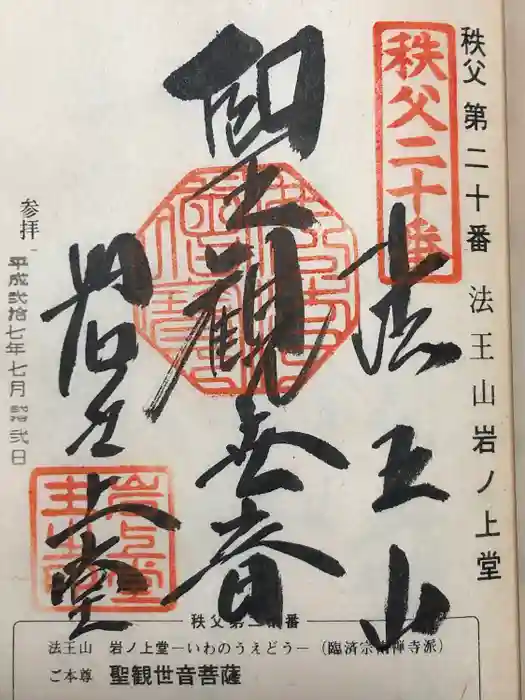 秩父 第二十番 法王山岩ノ上堂
秩父二十番
法王山
聖観世音
岩之上堂
参拝
平成弐拾七年七月弐拾弐日
秩父第二十番
法王山 岩ノ上堂―いわのうえどう―(臨済宗南禅寺派)
ご本尊 聖観世音菩薩